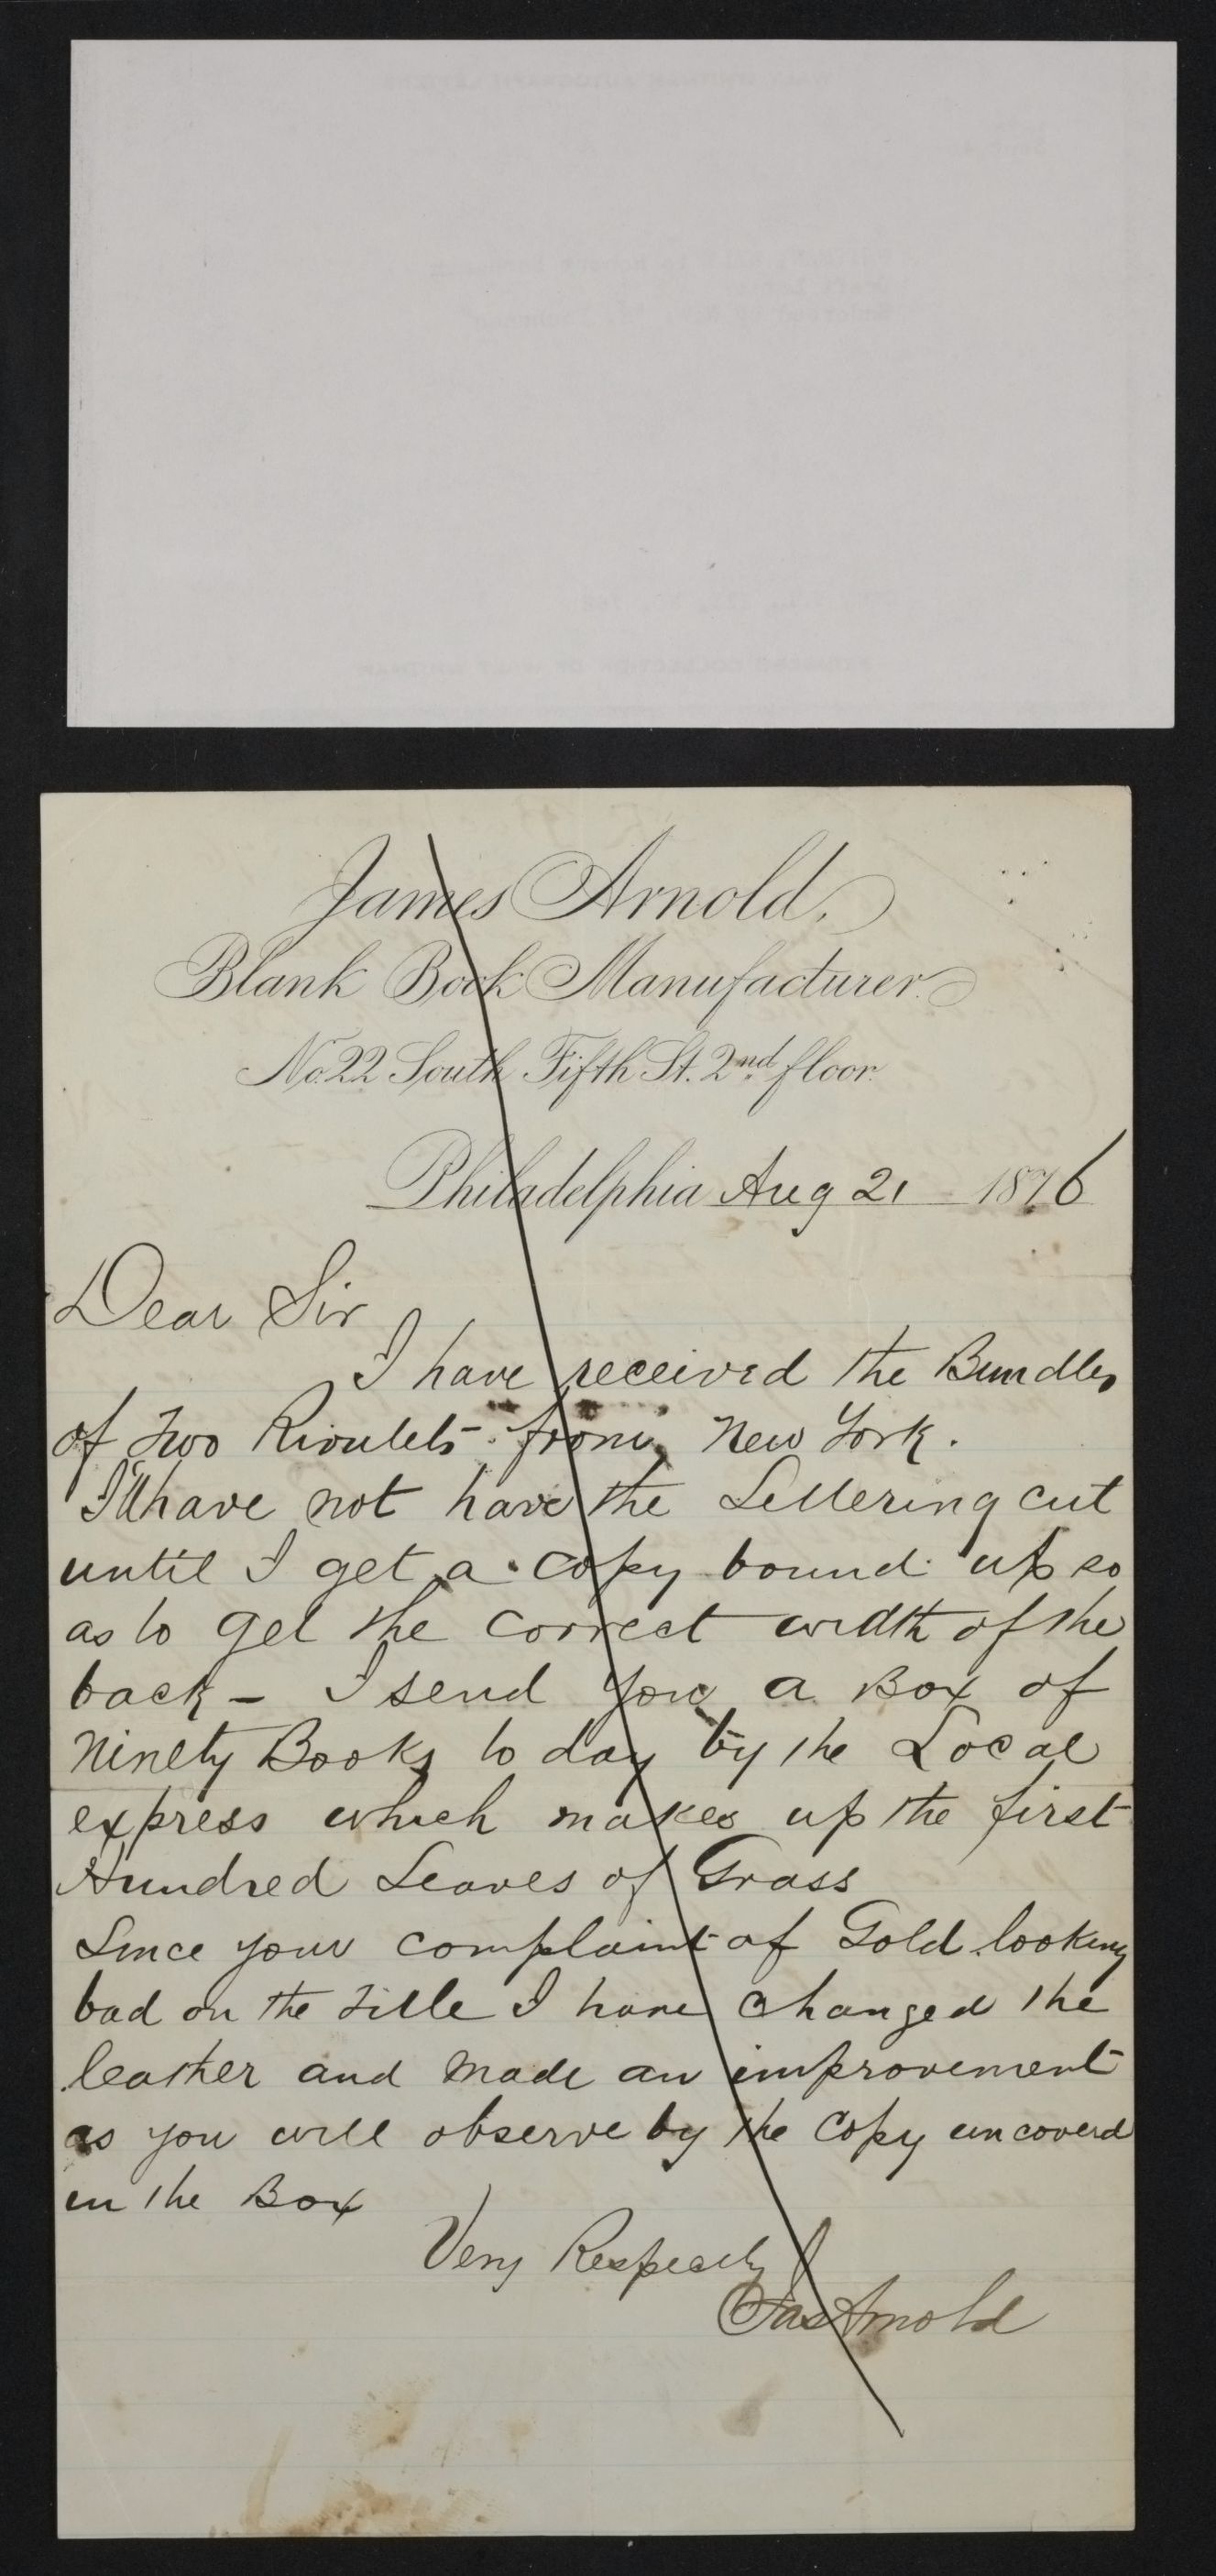 James Arnold,
Blank Book Manufacturer.
No. 22 South Fifth St. 2nd floor.
Philadelphia Aug 21 1876
Dear Sir
I have received the Bundles
of Two Rivulets from New York.
I'll have not have the Lettering cut
until I get a copy bound up so
as to get the correct width of the
back – I send you a Box of
Ninety Books to day by the Local
express which makes up the first
Hundred Leaves of Grass
Since your complaint of Gold looking
bad on the Title I have changed the
leather and made an improvement
as you will observe by the Copy uncoverd
in the Box
Very Respectly
Jas Arnold